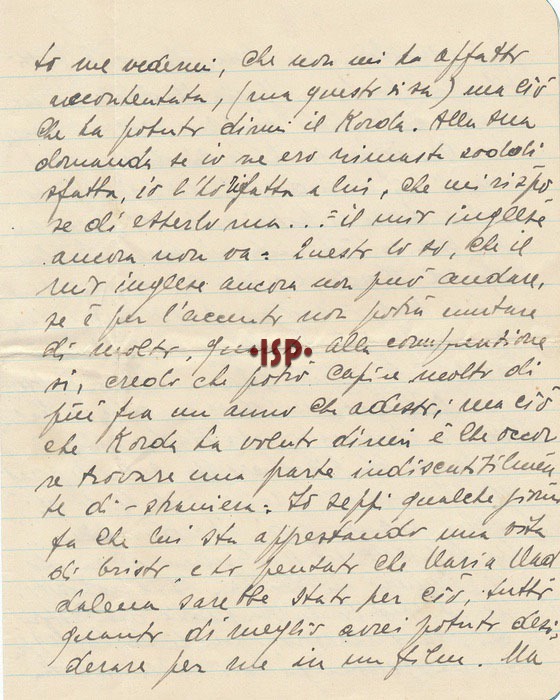 to me vedermi, che non mi ha affatto
accontentata, (ma questo si sa) ma ciò
che ha potuto dirmi il Korda. Alla sua
domanda se io ne ero rimasta soddi
sfatta, io l'ho rifatta a lui, che mi rispo
se di esserlo ma... = il mio inglese
ancora non va = Questo lo so, che il
mio inglese ancora non può andare,
se è per l'accento non potrà mutare
di molto, alla comprensione
si, credo che potrò capire molto di
più fra un anno che adesso; ma ciò
che Korda ha voluto dirmi è che occor
re trovare una parte indiscutibilmen
te di - straniera = Io seppi qualche giorno
fa che lui sta apprestando una vita
di Cristo, e ho pensato che Maria Mad
dalena sarebbe stato per ciò, tutto
quanto di meglio avrei potuto desi
derare per me in un film. Ma
ISP